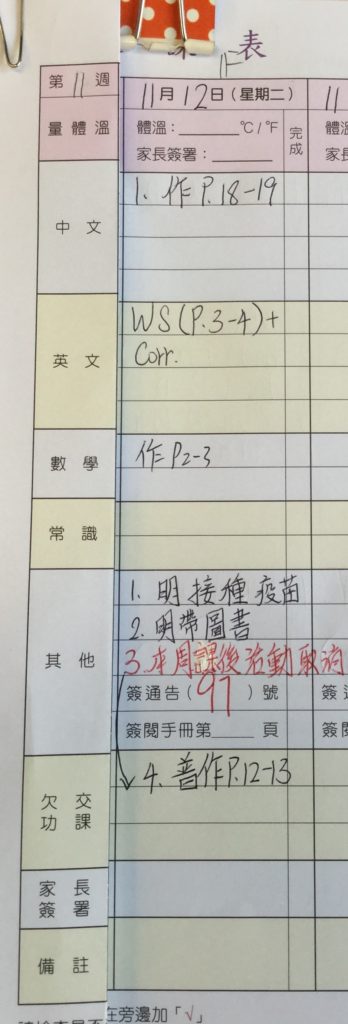 表
第 11 週
11月12日(星期二)
11
量體溫
體溫:______°C/°F
家長簽署:______
完成
中文
1. 作 P.18-19
英文
WS (P.3-4)+
Corr.
數學
作 P2-3
常識
其他
1. 明接種疫苗
2. 明帶圖書
3. 本周課後活動取消
簽通告( 97 )號
簽閱手冊第____頁
4. 普作P.12-13
欠交功課
家長簽署
備註
在旁邊加「√」